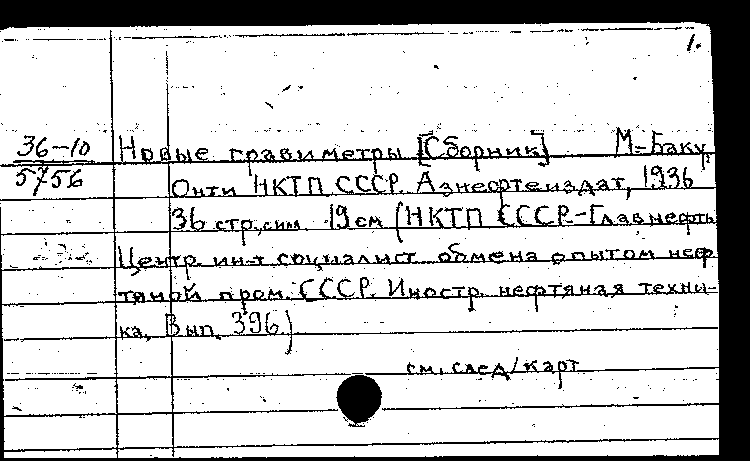 1.
36-10 Новые гравиметры [Сборник] М-Баку,
5756 Онти НКТП СССР. Азнефтеиздат, 1936
36 стр., 19 см (НКТП СССР-Главнефть
Центр. ин-т социалист. обмена опытом неф
тяной пром. СССР. Иностр. нефтяная техни-
ка, Вып. 396.)
см. след/карт